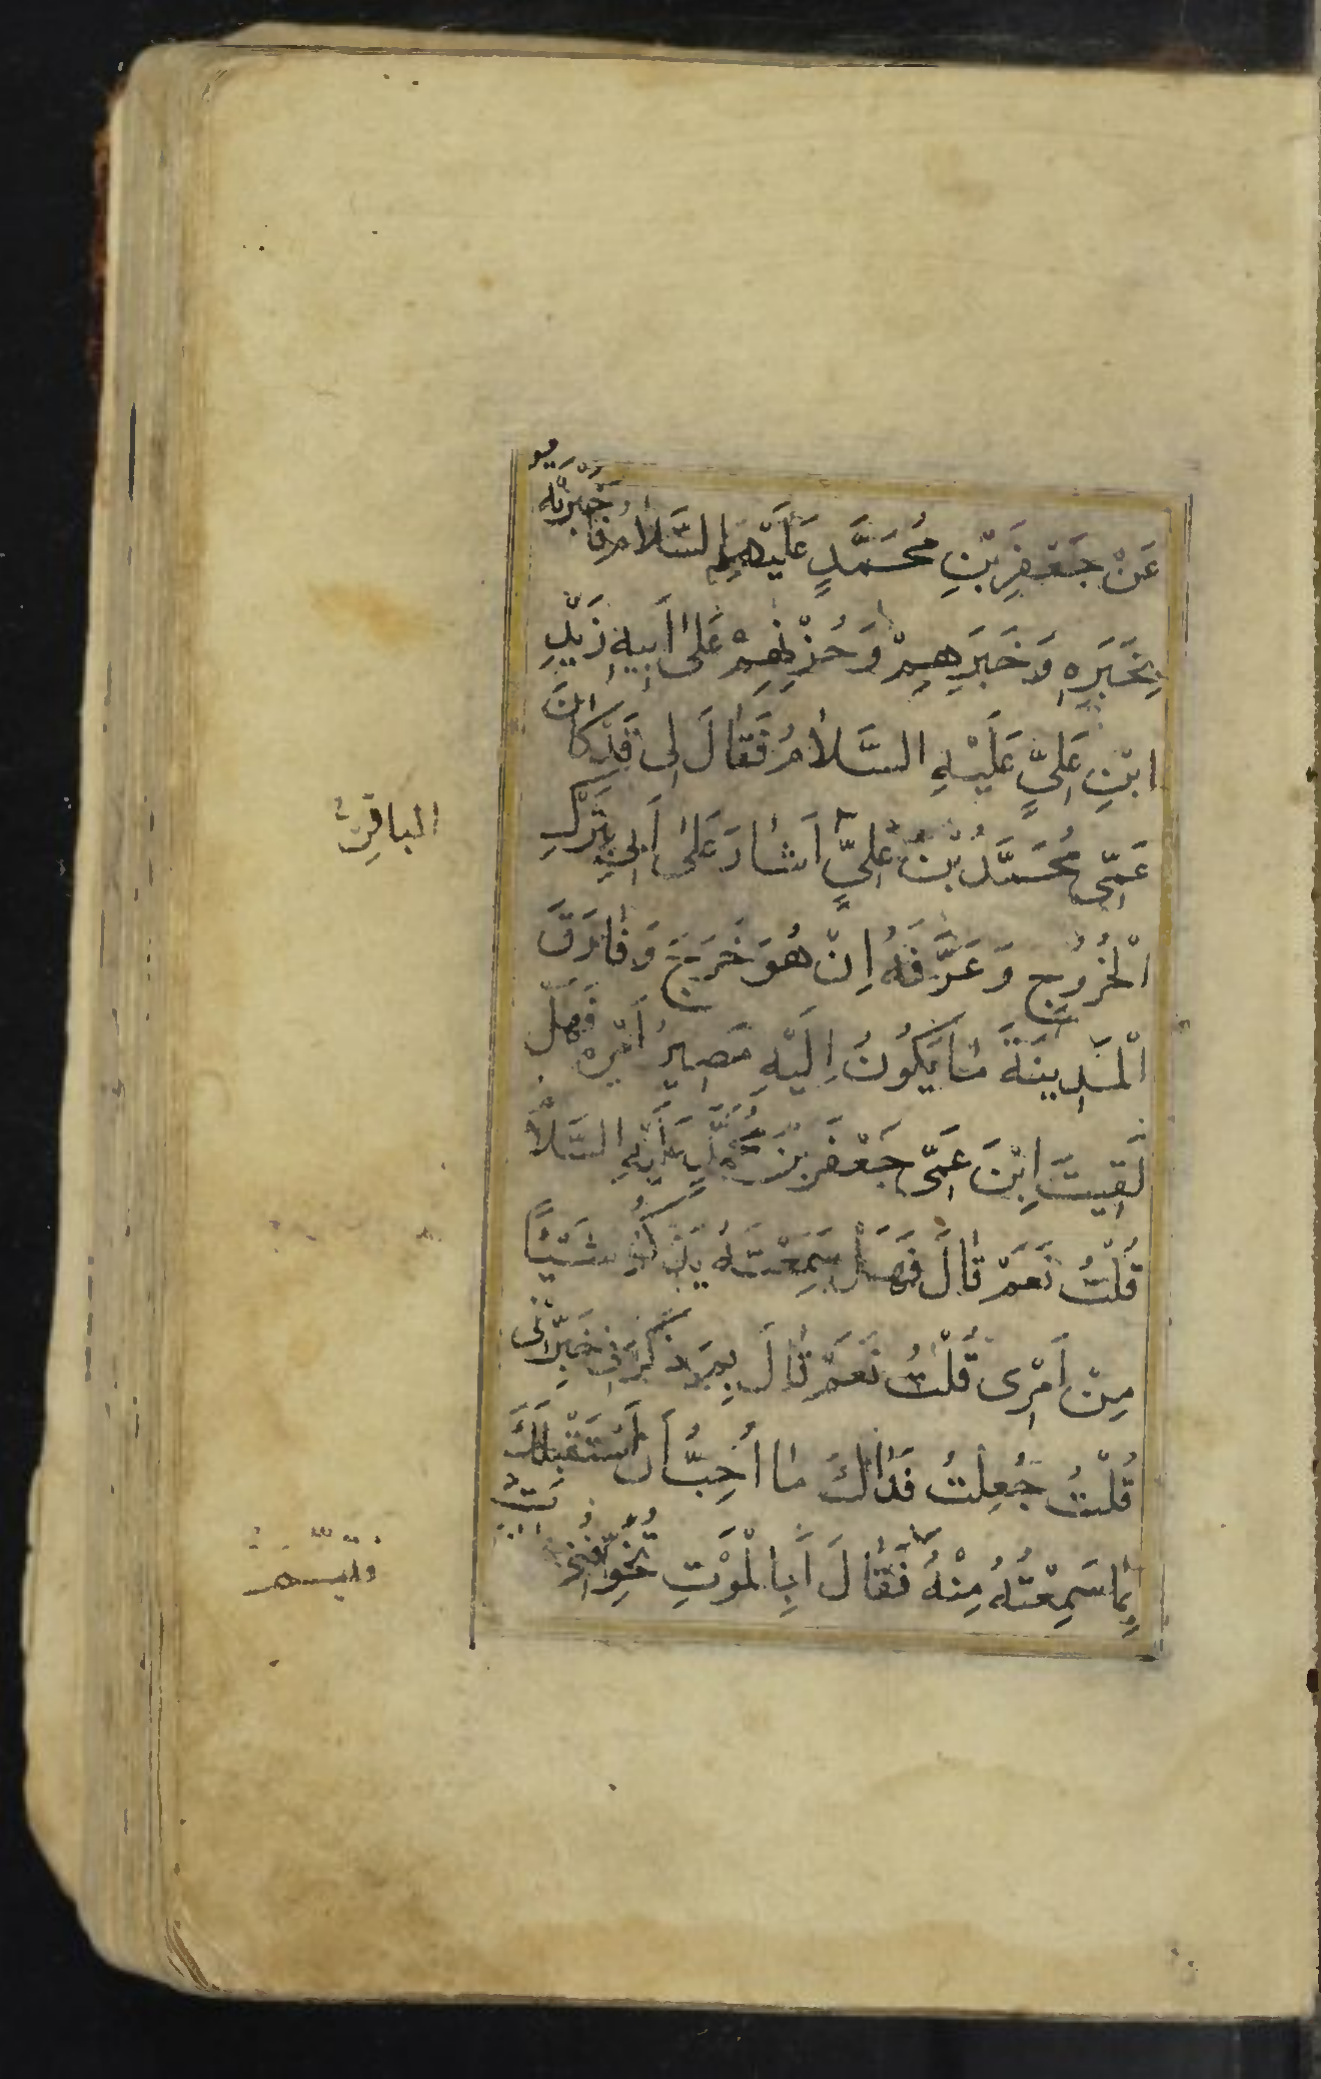 عَنْ جَعْفَرِ بْنِ مُحَمَّدٍ عَلَيْهِمُ السَّلَامُ فَأَخْبَرْتُهُ
بِخَبَرِهِ وَخَبَرِهِمْ وَحُزْنِهِمْ عَلَىٰ أَبِيهِ زَيْدِ
ابْنِ عَلِيٍّ عَلَيْهِ السَّلَامُ فَقَالَ لِي قَدْ كَانَ
عَمِّي مُحَمَّدُ بْنُ عَلِيٍّ أَشَارَ عَلَىٰ أَبِي بِتَرْكِ
الْخُرُوجِ وَعَرَّفَهُ إِنْ هُوَ خَرَجَ وَفَارَقَ
الْمَدِينَةَ مَا يَكُونُ إِلَيْهِ مَصِيرُ أَمْرِهِ فَهَلْ
لَقِيتَ ابْنَ عَمِّي جَعْفَرَ بْنَ مُحَمَّدٍ عَلَيْهِ السَّلَامُ
قُلْتُ نَعَمْ قَالَ فَهَلْ سَمِعْتَهُ يَذْكُرُ شَيْئًا
مِنْ أَمْرِي قُلْتُ نَعَمْ قَالَ بِمَ ذَكَرَنِي خَبِّرْنِي
قُلْتُ جُعِلْتُ فِدَاكَ مَا أُحِبُّ أَنْ أَسْتَقْبِلَكَ
بِمَا سَمِعْتُهُ مِنْهُ فَقَالَ أَبِالْمَوْتِ تُخَوِّفُنِي
الباقِرُ